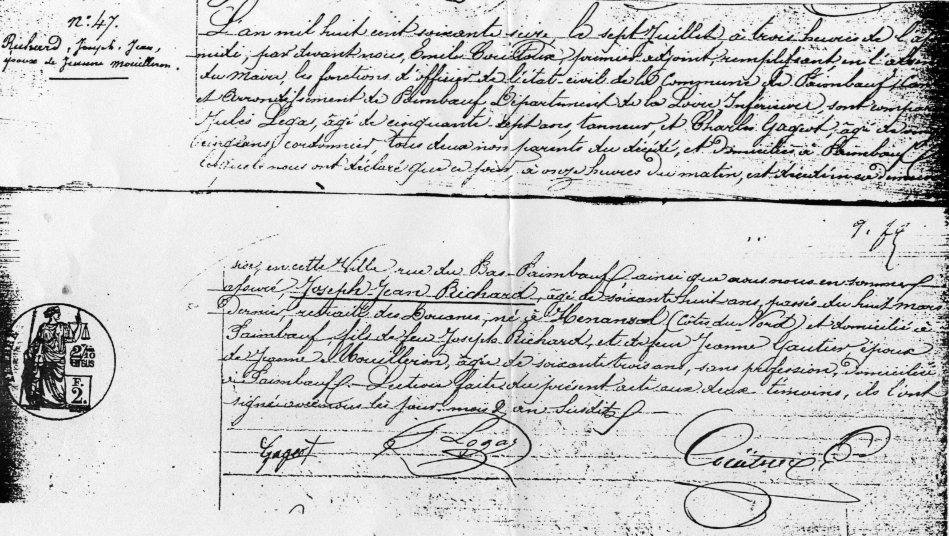 n° 47.
Richard, Joseph-Jean,
époux de Jeanne Mouilleron.
L'an mil huit cent soixante seize le sept Juillet à trois heures de l'a
midi, par devant nous, Emile premier adjoint, remplissant en l'abse
du Maire, les fonctions d'officier de l'état-civil de la Commune de Paimbœuf, Can
et Arrondissement de Paimbœuf Département de la Loire Inférieure sont compa
Jules Legas, âgé de cinquante sept ans, tanneur, et Charles Gagest, âgé de
cinq ans, cordonnier, tous deux non parents du décédé, et domiciliés à Paimbœuf
lesquels nous ont déclaré que ce jour, à onze heures du matin, est décédé en sa demeure
9. f
sise, en cette Ville, rue du Bas-Paimbœuf, ainsi que nous nous en sommes
assuré, Joseph Jean Richard, âgé de soixante huit ans, passés du huit mars
Dernier, retraité des Douanes, né à Henansal (Côtes du Nord) et domicilié à
Paimbœuf fils de feu Joseph Richard, et de feu Jeanne Gautier époux
de Jeanne Mouilleron, âgée de soixante trois ans, sans profession, Domiciliée
à Paimbœuf. Lecture faite du présent acte aux deux témoins, ils l'ont
signé avec nous les jour, mois & an susdits
Gagest Legas
2/10
EN SUS
F.
2.